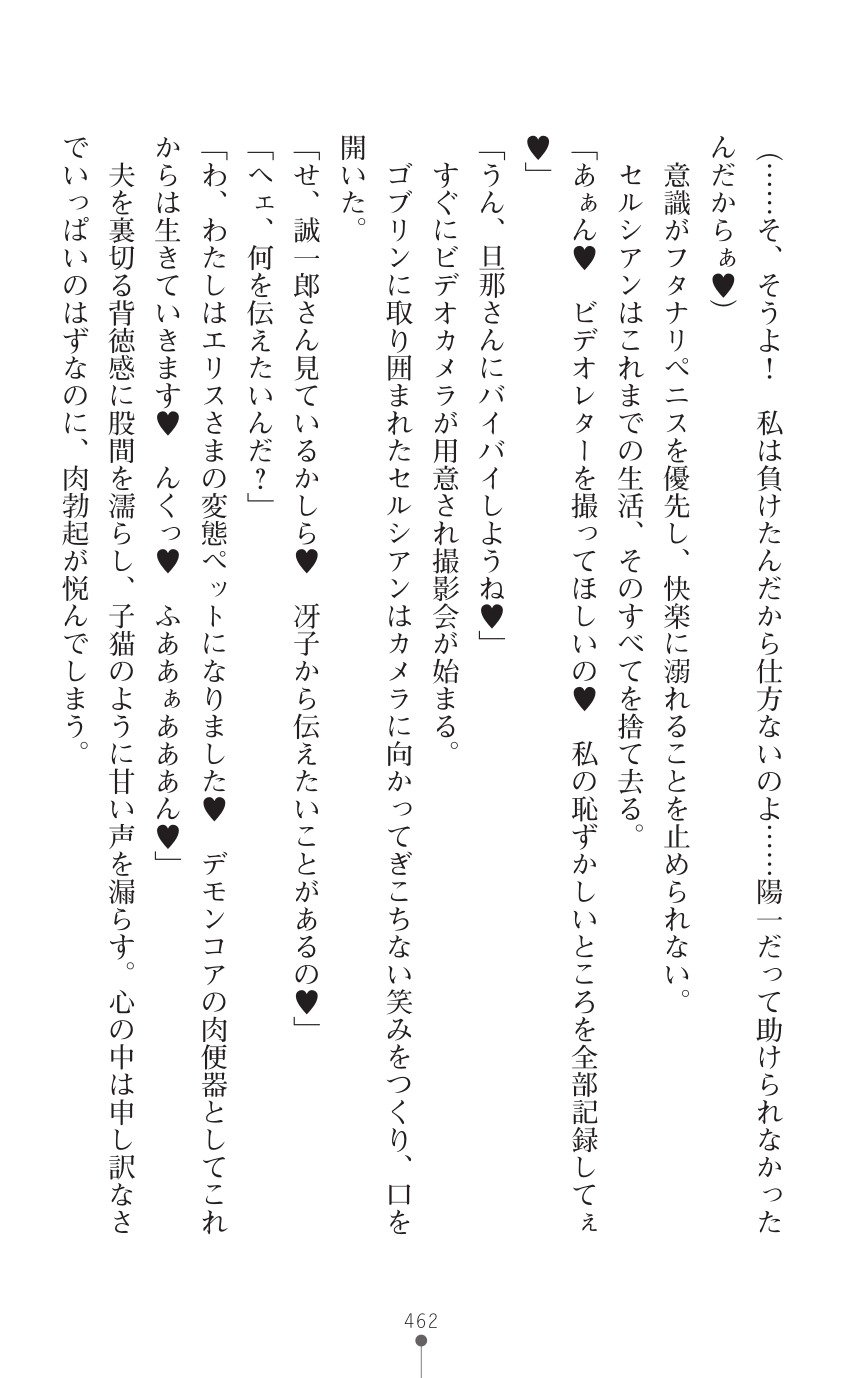 (……そ、そうよ！　私は負けたんだから仕方ないのよ……陽一だって助けられなかった
んだからぁ♥)
　意識がフタナリペニスを優先し、快楽に溺れることを止められない。
　セルシアンはこれまでの生活、そのすべてを捨て去る。
「あぁん♥　ビデオレターを撮ってほしいの♥　私の恥ずかしいところを全部記録してぇ
♥」
「うん、旦那さんにバイバイしようね♥」
　すぐにビデオカメラが用意され撮影会が始まる。
　ゴブリンに取り囲まれたセルシアンはカメラに向かってぎこちない笑みをつくり、口を
開いた。
「せ、誠一郎さん見ているかしら♥　冴子から伝えたいことがあるの♥」
「へェ、何を伝えたいんだ？」
「わ、わたしはエリスさまの変態ペットになりました♥　デモンコアの肉便器としてこれ
からは生きていきます♥　んくっ♥　ふああぁあああん♥」
　夫を裏切る背徳感に股間を濡らし、子猫のように甘い声を漏らす。心の中は申し訳なさ
でいっぱいのはずなのに、肉勃起が悦んでしまう。
462